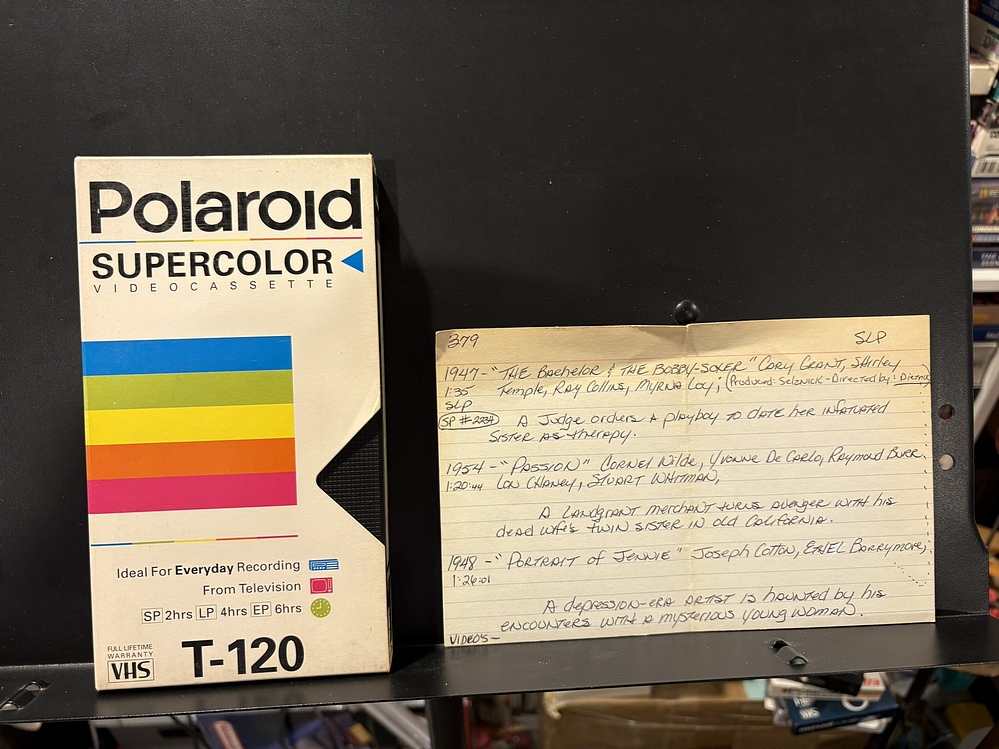 Polaroid
SUPERCOLOR
VIDEOCASSETTE
Ideal For Everyday Recording
From Television
SP 2hrs LP 4hrs EP 6hrs
FULL LIFETIME
WARRANTY
VHS
T-120
379 SLP
1947-"THE Bachelor & THE BOBBY-SOXER" Cary Grant, Shirley
1:35 Temple, Ray Collins, Myrna Loy; (Produced: Selznick-Directed by:
SLP
SP # A Judge orders a playboy to date her infatuated
Sister as therapy.
1954-"Passion" Cornel Wilde, Yvonne De Carlo, Raymond Burr,
1:20:44 Lon Chaney, Stuart Whitman,
A Landgrant merchant turns avenger with his
dead wife's twin sister in old California.
1948-"Portrait of Jennie" Joseph Cotton, Ethel Barrymore,
1:26:01
A depression-era artist is haunted by his
encounters with a mysterious young woman.
VIDEO'S-